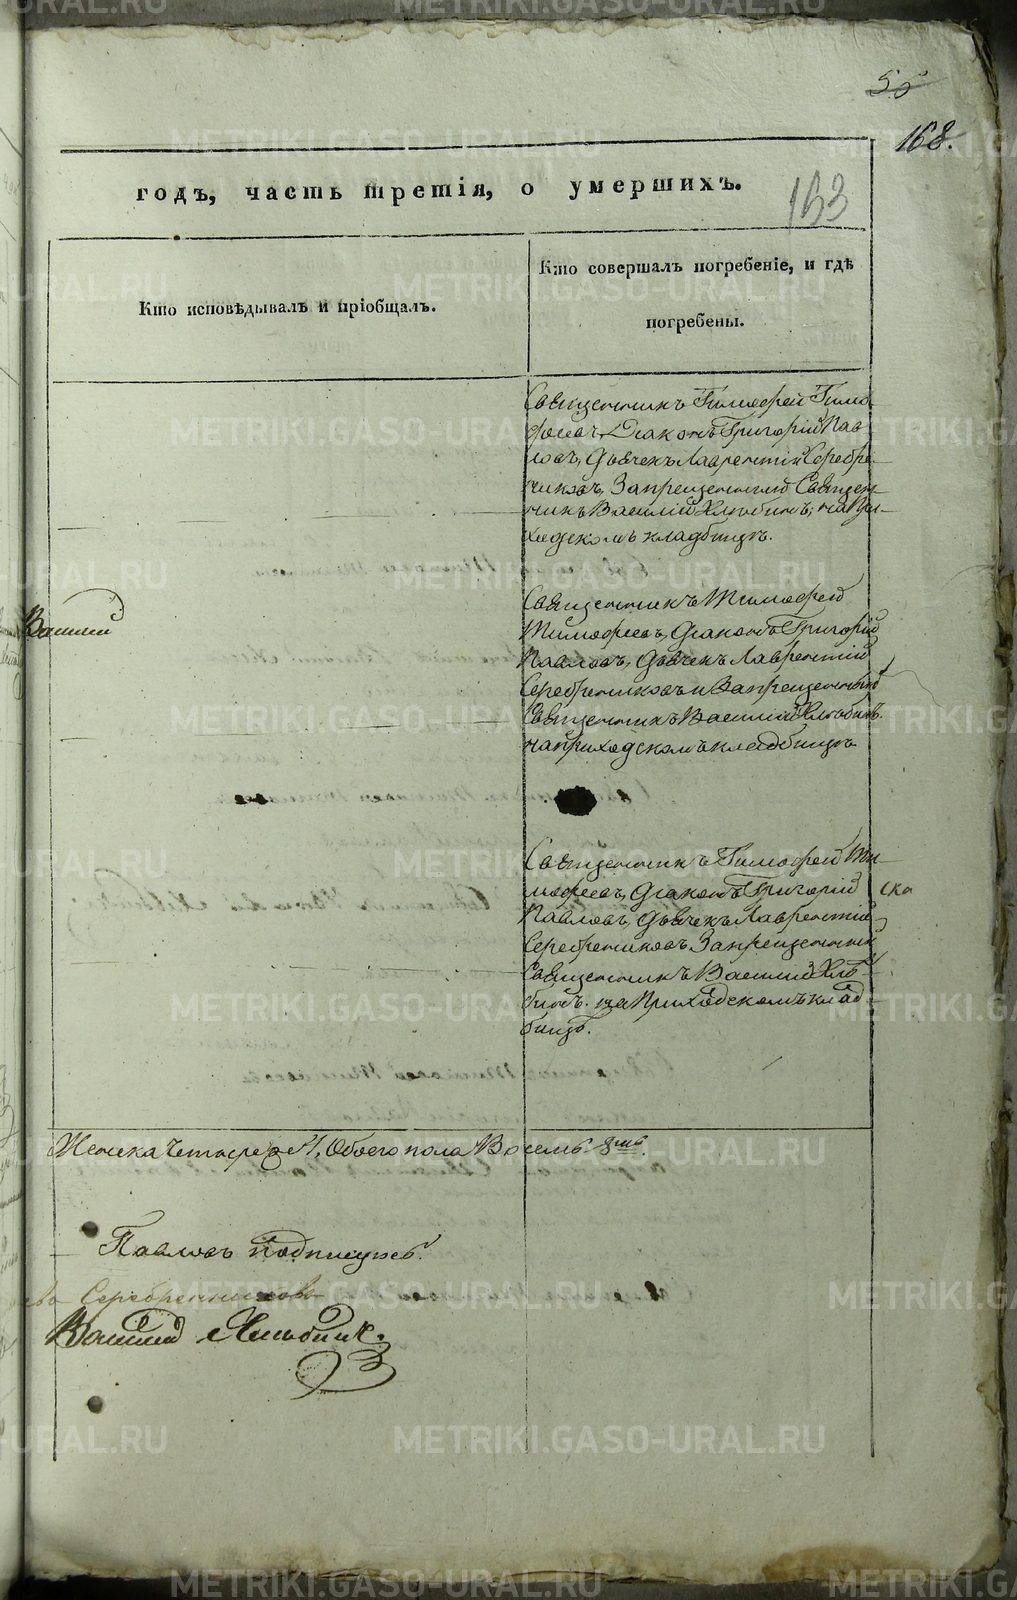 55
168.
годъ, часть третія, о умершихъ.
153
Кто исповѣдывалъ и пріобщалъ.
Кто совершалъ погребеніе, и гдѣ
погребены.
Священникъ Тимофей Тимо-
феевъ, Діаконъ Григорій Пав
ловъ, Дьячекъ Лаврентій Серебре-
никовъ, Запрещенный Священ
никъ Василій Хлѣбинъ, на При-
ходскомъ кладбищѣ.
Василій
Священникъ Тимофей
Тимофеевъ, Діаконъ Григорій
Павловъ, Дьячекъ Лаврентій
Серебрениковъ и Запрещенный
Священникъ Василій Хлѣбинъ.
на приходскомъ кладбищѣ
Священникъ Тимофей Ти-
мофеевъ, Діаконъ Григорій
Павловъ, Дьячекъ Лаврентій
Серебрениковъ, Запрещенный
Священникъ Василій Хлѣ-
бинъ. на Приходскомъ клад
бищѣ.
Женска четыре 4, Обоего пола Восемь 8мь.
Павловъ подписуюсь.
Серебренниковъ
Василій Хлѣбин
METRIKI.GASO-URAL.RU